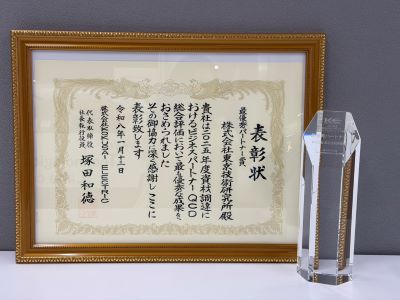 表彰状
最優秀パートナー賞
株式会社東京技術研究所殿
貴社は二〇二五年度資材調達に
おけるビジネスパートナーQCD
総合評価において最も優秀な成果を
おさめられました
その御協力に深く感謝しここに
表彰致します
令和八年一月十三日
株式会社KOKUSAI ELECTRIC
代表取締役
社長執行役員
塚田和徳